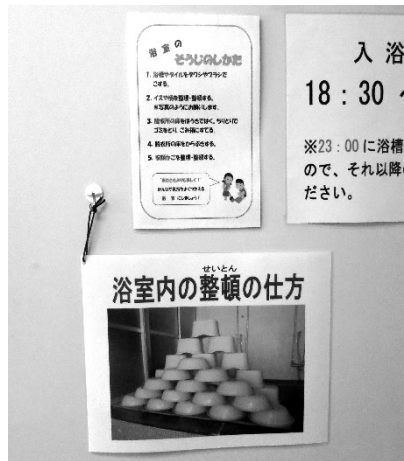 浴室の
そうじのしかた
1. 浴槽やタイルをタワシやブラシで
こする。
2. イスや桶を整理・整頓する。
※写真のようにお願いします。
3. 脱衣所の床をほうきではく。ちりとりで
ゴミをとり、ごみ箱にすてる。
4. 脱衣所の床をからぶきする。
5. 脱衣かごを整理・整頓する。
入浴
18：30
※23：00に浴槽
ので、それ以降
ださい。
せいとん
浴室内の整頓の仕方